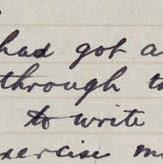 had got a
through
to write
exercise